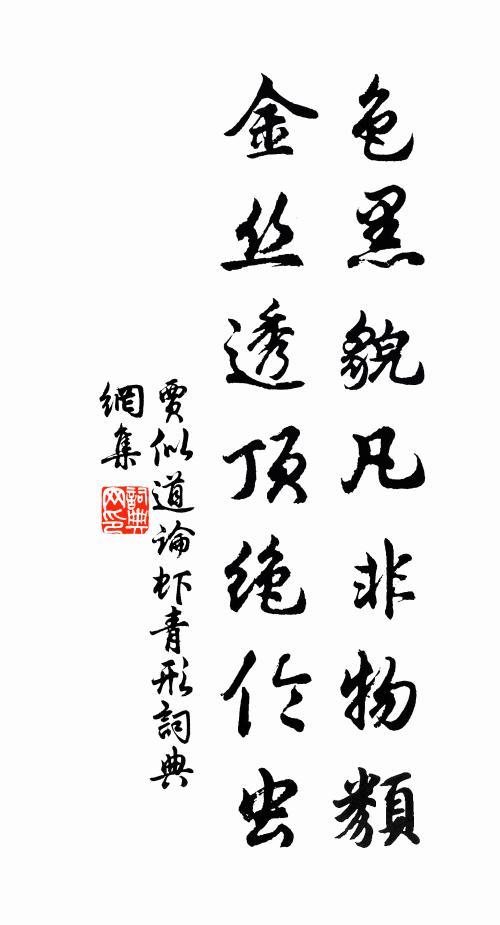 色黑貌凡非物類
金丝透顶绝伦虫
賈似道論虾青形詞典
網集
詞典
网印